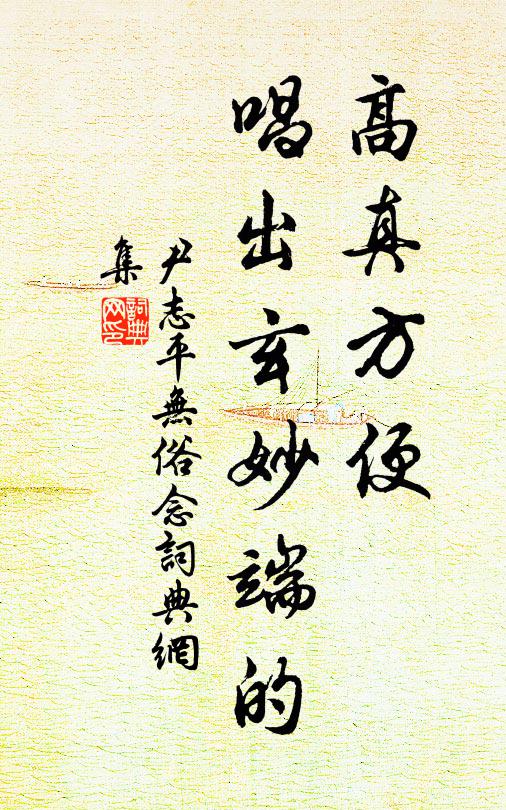 高真方便
唱出玄妙端的
尹志平無俗念詞典網
集
詞典
网印